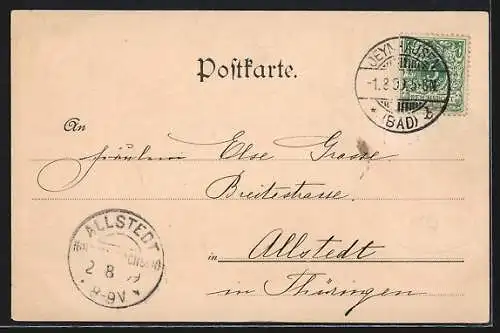 Postkarte.
OEYNHAUSEN
-1.8.99.5-6N.
* (BAD) b
An
Fräulein Else Grosse
Breitestrasse.
in Allstedt
in Thüringen
ALLSTEDT
2 8 99
8-9V